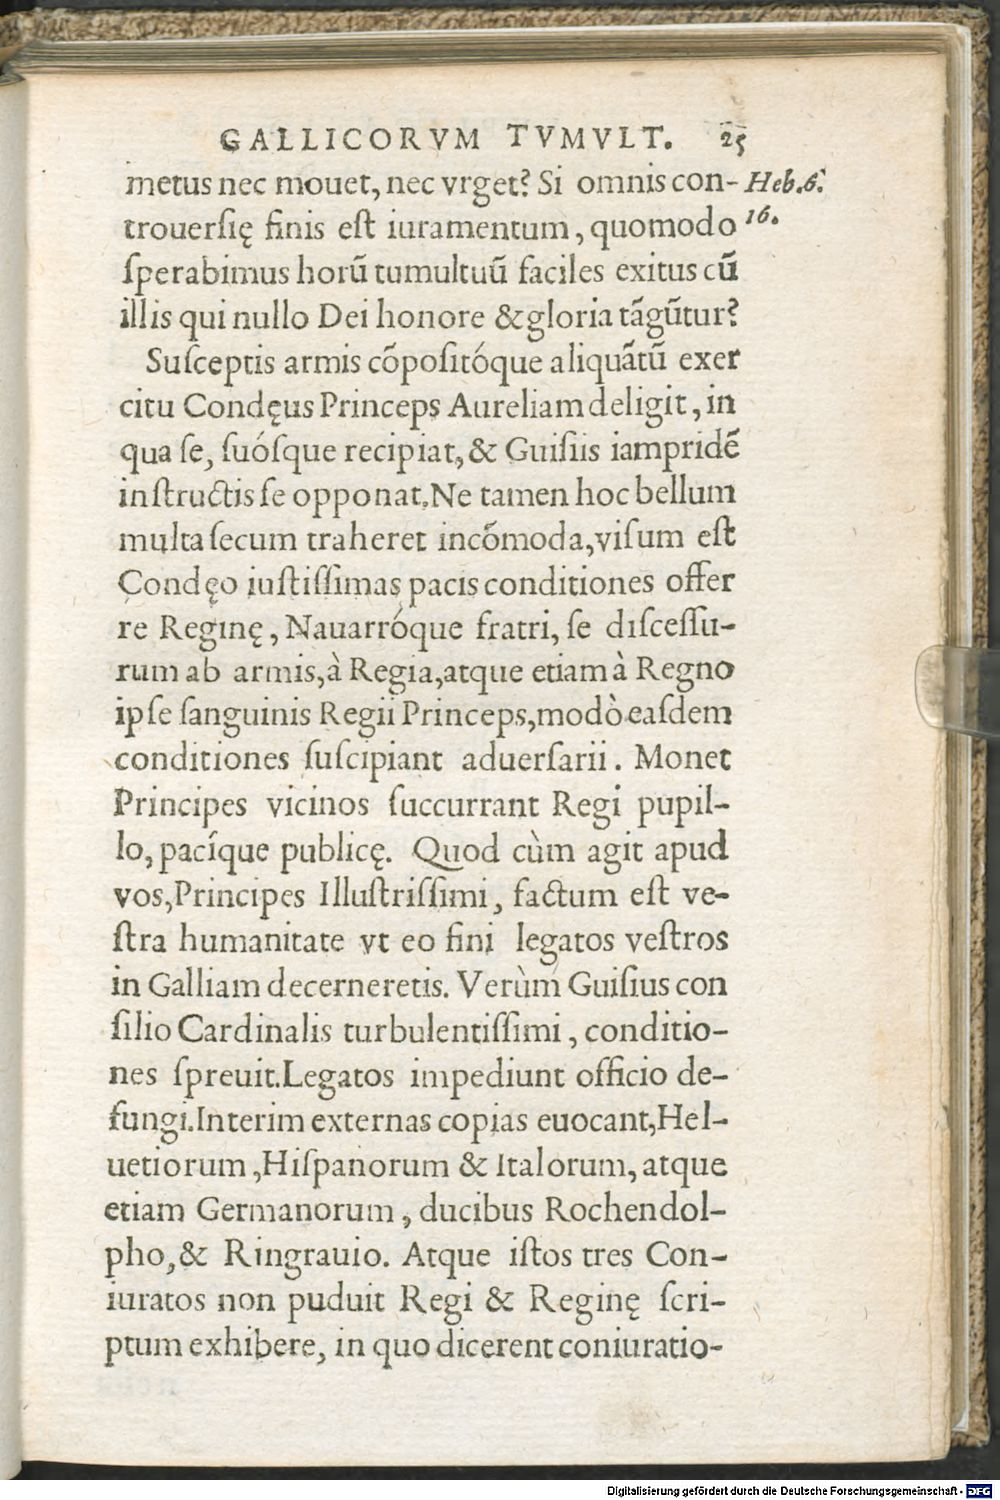 GALLICORVM TVMVLT. 25
metus nec mouet, nec vrget? Si omnis con- Heb.6.
trouersię finis est iuramentum, quomodo 16.
sperabimus horũ tumultuũ faciles exitus cũ
illis qui nullo Dei honore & gloria tãgũtur?
Susceptis armis cõpositóque aliquãtũ exer
citu Condęus Princeps Aureliam deligit, in
qua se, suósque recipiat, & Guisiis iampridẽ
instructis se opponat. Ne tamen hoc bellum
multa secum traheret incõmoda, visum est
Condęo iustissimas pacis conditiones offer
re Reginę, Nauarróque fratri, se discessu-
rum ab armis, à Regia, atque etiam à Regno
ipse sanguinis Regii Princeps, modò easdem
conditiones suscipiant aduersarii. Monet
Principes vicinos succurrant Regi pupil-
lo, pacíque publicę. Quod cùm agit apud
vos, Principes Illustrissimi, factum est ve-
stra humanitate vt eo fini legatos vestros
in Galliam decerneretis. Verùm Guisius con
silio Cardinalis turbulentissimi, conditio-
nes spreuit. Legatos impediunt officio de-
fungi. Interim externas copias euocant, Hel-
uetiorum, Hispanorum & Italorum, atque
etiam Germanorum, ducibus Rochendol-
pho, & Ringrauio. Atque istos tres Con-
iuratos non puduit Regi & Reginę scri-
ptum exhibere, in quo dicerent coniuratio-
Digitalisierung gefördert durch die Deutsche Forschungsgemeinschaft - DFG